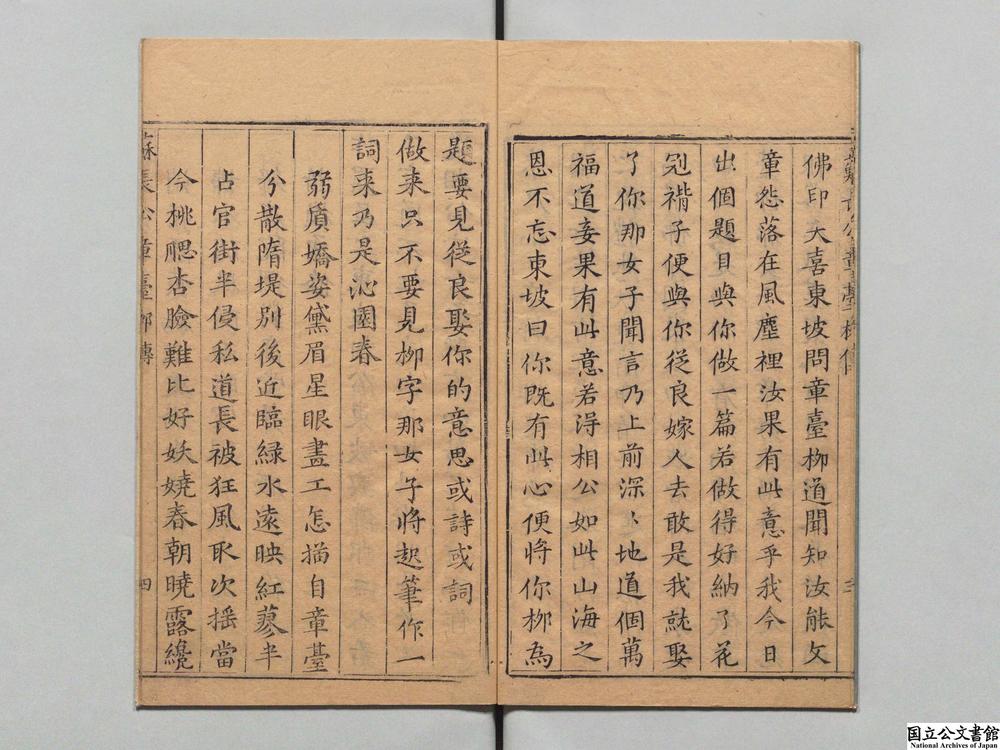 佛印大喜東坡問章臺柳道聞知汝能文
章愁落在風塵裡汝果有此意乎我今日
出個題目與你做一篇若做得好納了花
冠褙子便與你從良嫁人去敢是我就娶
了你那女子聞言乃上前深〻地道個萬
福道妾果有此意若得相公如此山海之
恩不忘東坡曰你既有此心便將你柳為
三
題要見從良娶你的意思或詩或詞
做來只不要見柳字那女子將起筆作一
詞來乃是沁園春
弱質嬌姿黛眉星眼畫工怎描自章臺
兮散隋堤別後近臨綠水遠映紅蓼半
占官街半侵私道長被狂風取次搖當
今桃腮杏臉難比好妖嬈春朝曉露纔
蘇長公章臺柳傳
四
国立公文書館
National Archives of Japan